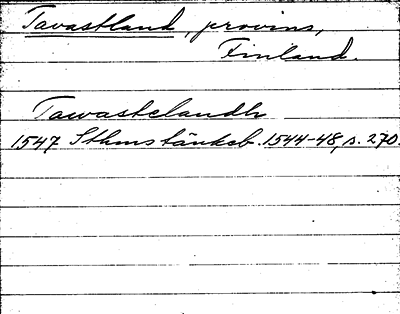 Tavastland, provins,
Finland.
Tawastelandh
1547 Sthms tänkeb. 1544-48, s. 270.